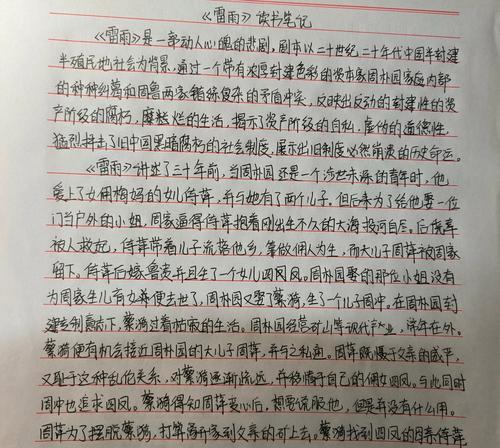 《雷雨》读书笔记
《雷雨》是一部动人心魄的悲剧，剧本以二十世纪二十年代中国半封建
半殖民地社会为背景，通过一个带有浓厚封建色彩的资本家周朴园家庭内部
的种种纠葛和周鲁两家错综复杂的矛盾冲突，反映出反动的封建性的资
产阶级的腐朽，糜烂的生活，揭示了资产阶级的自私，虚伪的道德性，
猛烈抨击了旧中国黑暗腐朽的社会制度，展示出旧制度必然崩溃的历史命运。
《雷雨》讲述了三十年前，当周朴园还是一个涉世未深的青年时，他
爱上了女佣梅妈的女儿侍萍，并与她有了两个儿子。但后来为了给他娶一位
门当户外的小姐，周家逼得侍萍抱着刚出生不久的大海投河自尽。后侥幸
被人救起，侍萍带着儿子流落他乡，靠做佣人为生，而大儿子周萍被周家
留下。侍萍后嫁鲁贵并且生了一个女儿四凤。周朴园娶的那位小姐没有
为周家生儿育女便去世了，周朴园又娶了蘩漪，生了一个儿子周冲。在周朴园封
建专制意志下，蘩漪过着枯寂的生活。周朴园经营矿山等现代产业，常年在外。
蘩漪便有机会接近周朴园的大儿子周萍，并与之私通。周萍既慑于父亲的威严，
又耻于这种乱伦关系，对蘩漪逐渐疏远，并移情于自己的佣女四凤。与此同时
周冲也追求四凤。蘩漪得知周萍变心后，想要说服他，但是并没有什么用。
周萍为了摆脱蘩漪，打算离开家到父亲的矿上去，蘩漪找到四凤的母亲侍萍